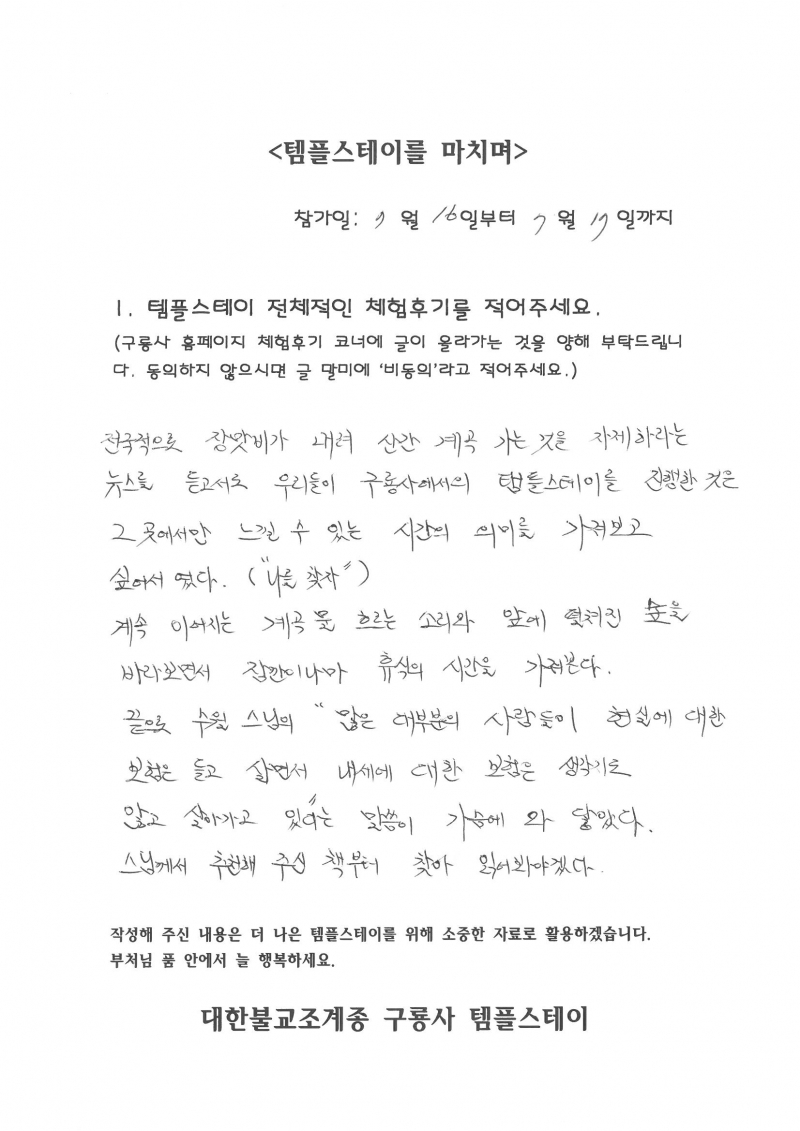 <템플스테이를 마치며>
참가일: 7 월 16일부터 7 월 17 일까지
1. 템플스테이 전체적인 체험후기를 적어주세요.
(구룡사 홈페이지 체험후기 코너에 글이 올라가는 것을 양해 부탁드립니
다. 동의하지 않으시면 글 말미에 '비동의'라고 적어주세요.)
전국적으로 장맛비가 내려 산간 계곡 가는 것을 자제하라는
뉴스를 듣고서도 우리들이 구룡사에서의 템플스테이를 진행한 것은
그 곳에서만 느낄 수 있는 시간의 의미를 가져보고
싶어서 였다. ("나를 찾자")
계속 이어지는 계곡 물 흐르는 소리와 앞에 펼쳐진 숲을
바라보면서 잠깐이나마 휴식의 시간을 가져본다.
끝으로 수월 스님의 "많은 대부분의 사람들이 현실에 대한
보험은 들고 살면서 내세에 대한 보험은 생각지도
않고 살아가고 있다"는 말씀이 가슴에 와 닿았다.
스님께서 추천해 주신 책부터 찾아 읽어봐야겠다.
작성해 주신 내용은 더 나은 템플스테이를 위해 소중한 자료로 활용하겠습니다.
부처님 품 안에서 늘 행복하세요.
대한불교조계종 구룡사 템플스테이